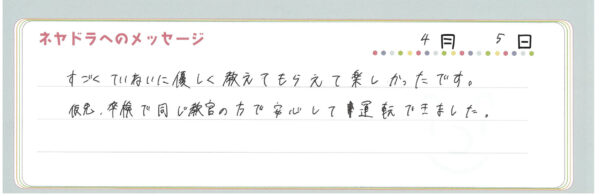 ネヤドラへのメッセージ 4月 5日
すごくていねいに優しく教えてもらえて楽しかったです。
仮免、卒検で同じ教官の方で安心して運転できました。